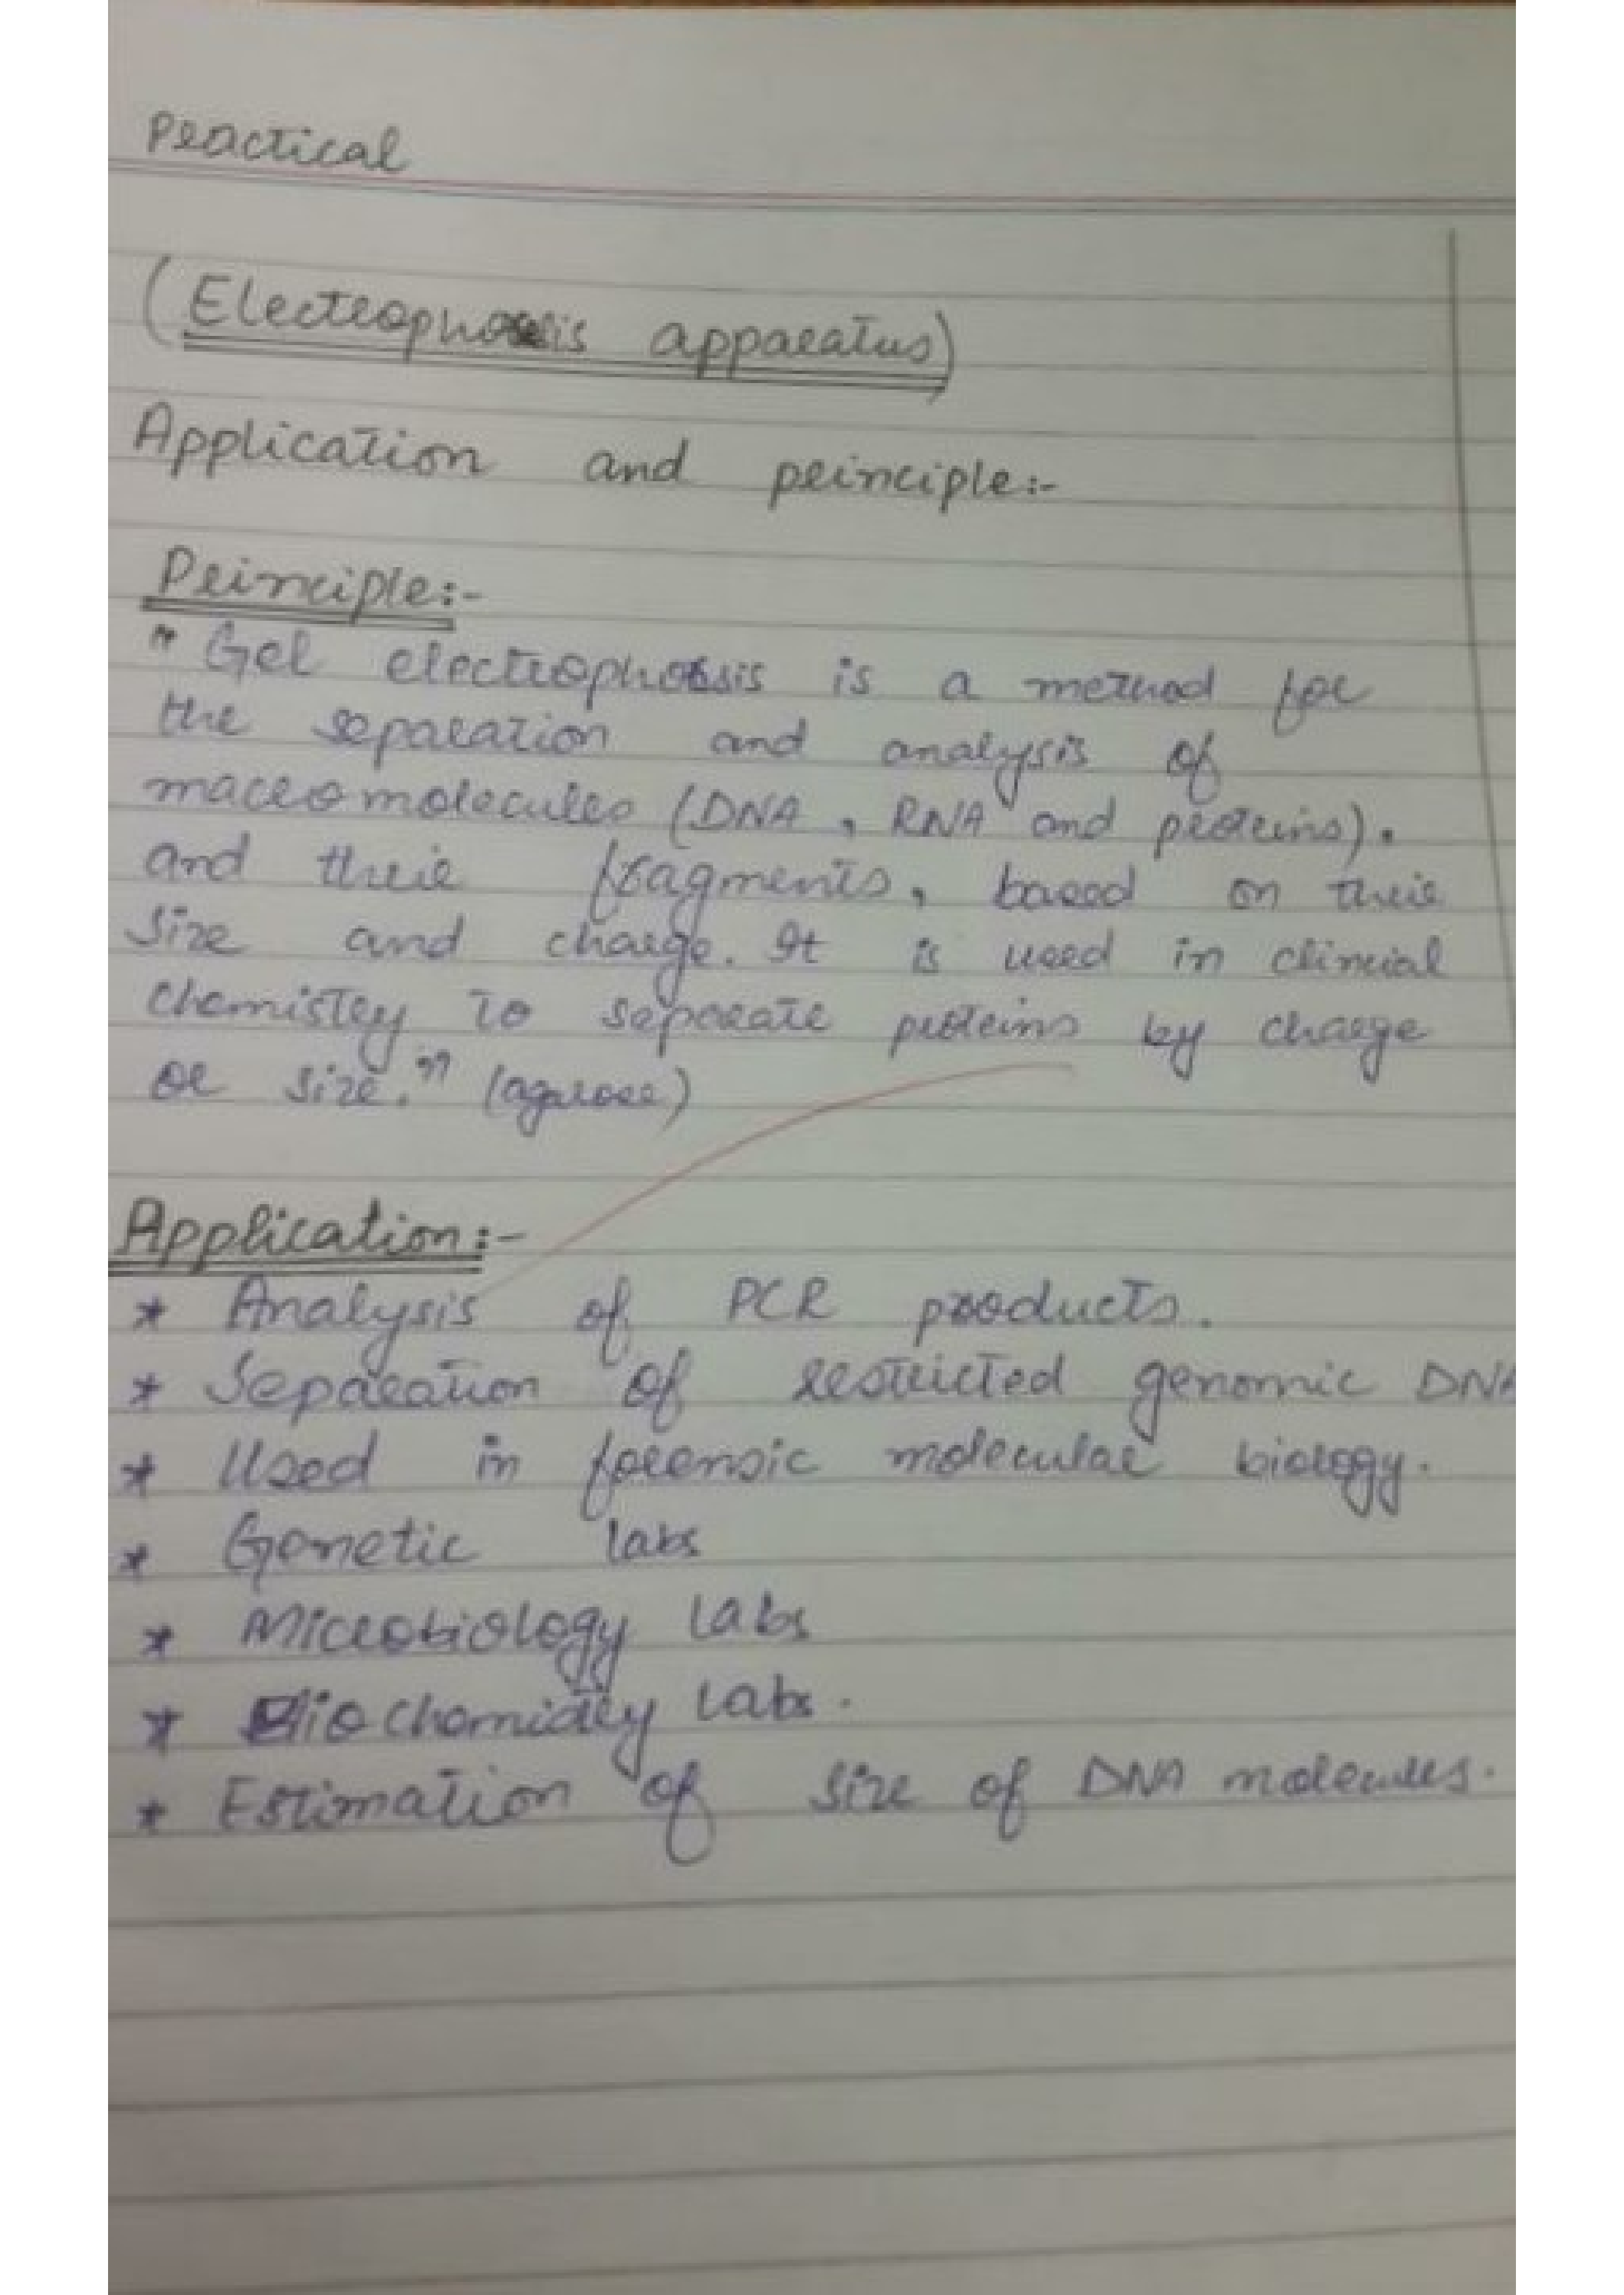 Practical
(Electrophorsis apparatus)
Application and principle:-
Principle:-
" Gel electrophorsis is a method for
the separation and analysis of
macromolecules (DNA, RNA and proteins).
and their fragments, based on their
size and charge. It is used in clincial
chemistry to separate proteins by charge
or size." (agarose)
Application:-
* Analysis of PCR products.
* Separation of restricted genomic DNA
* Used in forensic molecular biology.
* Genetic labs
* Microbiology labs
* Biochemistry labs.
* Estimation of size of DNA molecules.